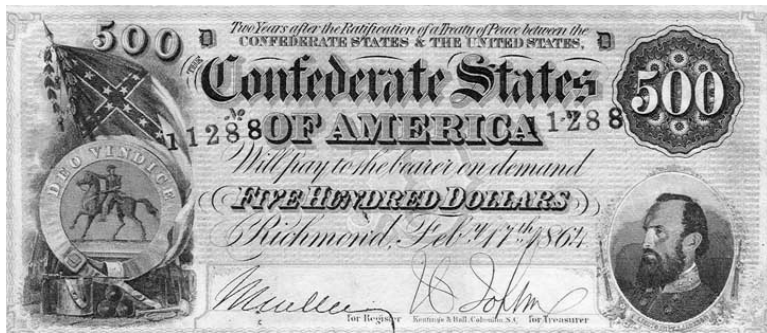 500 D Two Years after the Ratification of a Treaty of Peace between the D
CONFEDERATE STATES & THE UNITED STATES,
THE Confederate States
500
11288 OF AMERICA 1288
DEO VINDICE
Will pay to the bearer on demand
FIVE HUNDRED DOLLARS
Richmond, Feby. 17th 1864
for Register Keatinge & Ball, Columbia, S.C. for Treasurer